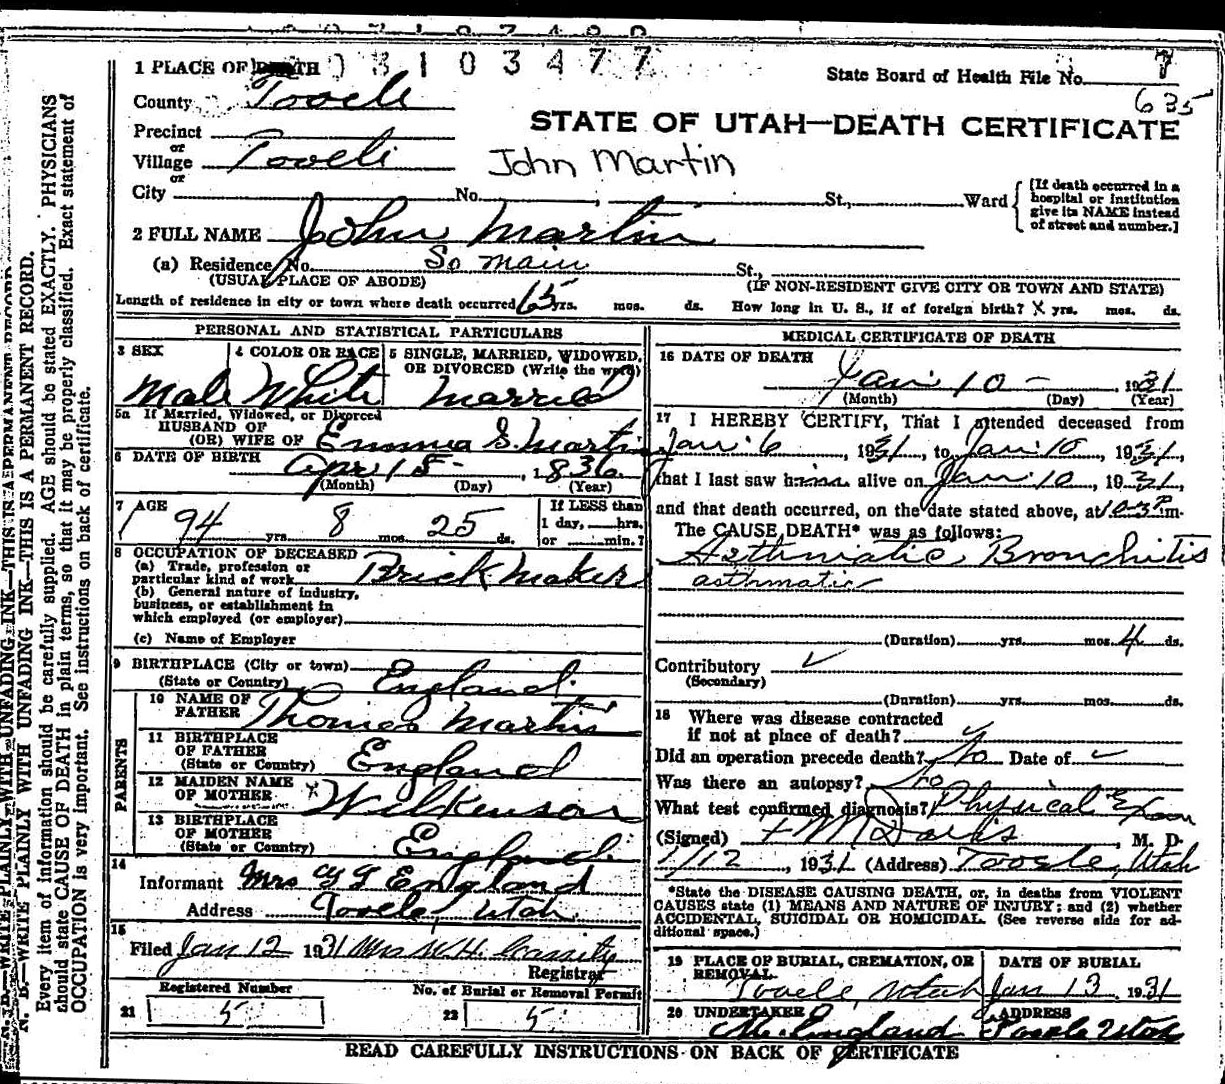 1 PLACE OF DEATH 0 3 1 0 3 4 7 7
State Board of Health File No. 7
635
County Tooele
STATE OF UTAH—DEATH CERTIFICATE
Precinct
or
Village Tooele
John Martin
or
City No. St., Ward
[If death occurred in a
hospital or institution
give its NAME instead
of street and number.]
2 FULL NAME John Martin
(a) Residence, No. So main St.,
(USUAL PLACE OF ABODE) (IF NON-RESIDENT GIVE CITY OR TOWN AND STATE)
Length of residence in city or town where death occurred 65 yrs. mos. ds. How long in U. S., if of foreign birth? X yrs. mos. ds.
PERSONAL AND STATISTICAL PARTICULARS
3 SEX 4 COLOR OR RACE 5 SINGLE, MARRIED, WIDOWED,
OR DIVORCED (Write the word)
Male White Married
5a If Married, Widowed, or Divorced
HUSBAND OF
(OR) WIFE OF Emma S. Martin
6 DATE OF BIRTH Apr 15 - , 1836
(Month) (Day) (Year)
7 AGE If LESS than
94 yrs. 8 mos. 25 ds. 1 day, hrs.
or min.?
8 OCCUPATION OF DECEASED
(a) Trade, profession or
particular kind of work Brick Maker
(b) General nature of industry,
business, or establishment in
which employed (or employer)
(c) Name of Employer
9 BIRTHPLACE (City or town)
(State or Country) England
PARENTS
10 NAME OF
FATHER Thomas Martin
11 BIRTHPLACE
OF FATHER
(State or Country) England
12 MAIDEN NAME
OF MOTHER X Wilkenson
13 BIRTHPLACE
OF MOTHER
(State or Country) England
14
Informant Mrs England
Address Tooele, Utah
15
Filed Jan 12 1931 Mrs W.H. Cassity
Registrar
Registered Number No. of Burial or Removal Permit
21 5 22 5
MEDICAL CERTIFICATE OF DEATH
16 DATE OF DEATH
Jan 10 - , 1931
(Month) (Day) (Year)
17 I HEREBY CERTIFY, That I attended deceased from
Jan 6 , 1931, to Jan 10, 1931,
that I last saw him alive on Jan 10, 1931,
and that death occurred, on the date stated above, at m.
The CAUSE DEATH* was as follows:
Asthmatic Bronchitis
asthmatic
(Duration) yrs. mos. 4 ds.
Contributory ✓
(Secondary)
(Duration) yrs. mos. ds.
18 Where was disease contracted
if not at place of death?
Did an operation precede death? No Date of ✓
Was there an autopsy? No
What test confirmed diagnosis? Physical Exam
(Signed) M Davis, M. D.
1/12, 1931 (Address) Tooele, Utah
*State the DISEASE CAUSING DEATH, or, in deaths from VIOLENT
CAUSES state (1) MEANS AND NATURE OF INJURY; and (2) whether
ACCIDENTAL, SUICIDAL OR HOMICIDAL. (See reverse side for ad-
ditional space.)
19 PLACE OF BURIAL, CREMATION, OR
REMOVAL
Tooele, Utah
DATE OF BURIAL
Jan 13 1931
20 UNDERTAKER ADDRESS
England Tooele Utah
READ CAREFULLY INSTRUCTIONS ON BACK OF CERTIFICATE
N. B.—WRITE PLAINLY WITH UNFADING INK—THIS IS A PERMANENT RECORD.
Every item of information should be carefully supplied. AGE should be stated EXACTLY. PHYSICIANS
should state CAUSE OF DEATH in plain terms, so that it may be properly classified. Exact statement of
OCCUPATION is very important. See instructions on back of certificate.